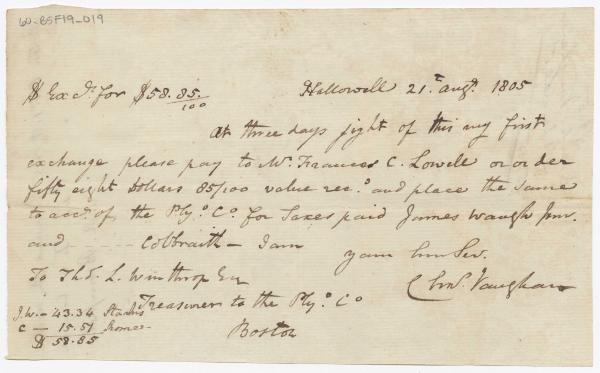 60-85F19-019
$ Exc.e for $58.85./100 Hallowell 21.st augt. 1805
At three days sight of this my first
exchange please pay to Mr. Francis C. Lowell or order
fifty eight Dollars 85/100 value rec.d and place the same
to acct. of the Ply.o C.o for Taxes paid James Waugh Junr.
and Colbraith - I am your hum Ser.
To Tho.s L. Winthrop Esq Chs. Vaughan
Treasurer to the Ply.o C.o
Boston
J.W. - 43.34 Starks
C - 15.51
$ 58.85